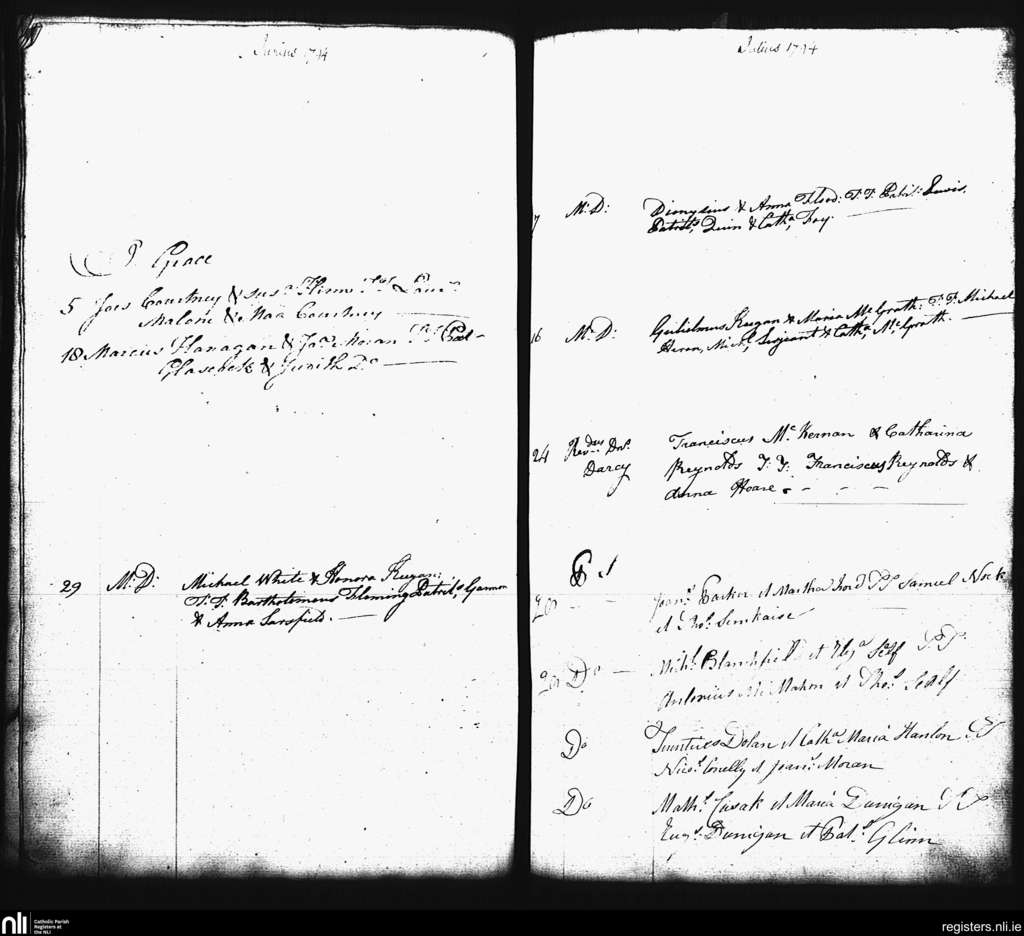 Junius 1794
P. Grace
5 Joes Courtney & Sus:a Flinn Ts: Laur:s
Malone & Courtney
18 Marcius Flanagan & Ja:e Moran Ts: Pat-
Glascock & Judith Do
29 M: D: Michael White & Honora Keegan:
T.T. Bartholomeus Fleming Patrits, Gannon
& Anna Sarsfield.
Julius 1794
7 M: D: Dionysius & Anna Flood: T.T. Patri:s Lewis.
Patrits, Quin & Catha, Foy.
16 M: D: Gulielmus Keegan & Maria McGrath: T.T. Michael
Heron, Michl, Serjeant & Catha, McGrath.
24 Revdus Dns. Franciscus Mc Kernan & Catharina
Darcy Reynolds T: T: Franciscus Reynolds &
Anna Hoare.
Joans Parker et Martha Ford Ss Samuel Nock
et Thos
Do Michl Blanchfield et Self
Antonius McMahon et Thos Self
Do Dolan et Catha Maria Hanlon
Nics Conelly et Joans Moran
Do Maths Cusak et Maria Dunigan
Eugs Dunigan et Pats Glinn
nli
Catholic Parish
Registers at
the NLI
registers.nli.ie